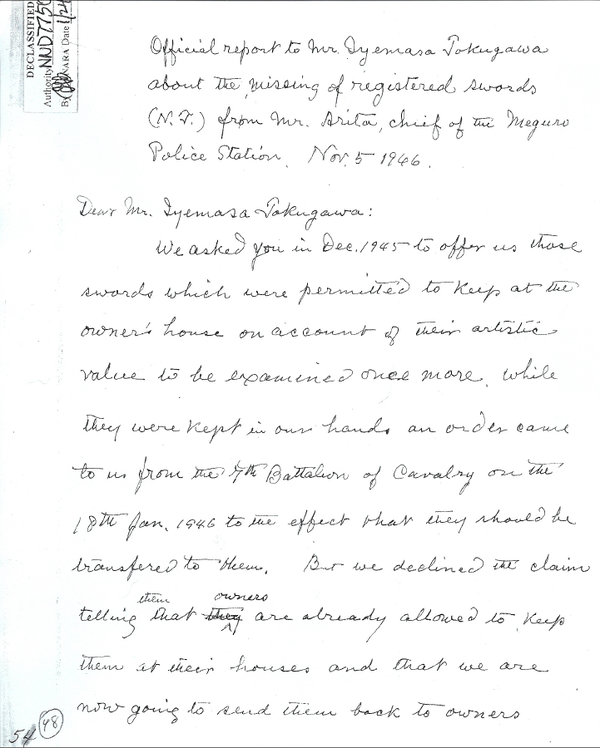 DECLASSIFIED
Authority NND775
By NARA Date 1/24
Official report to Mr. Iyemasa Tokugawa
about the missing of registered swords
(N.T.) from Mr. Arita, chief of the Meguro
Police Station. Nov. 5 1946.
Dear Mr. Iyemasa Tokugawa:
We asked you in Dec. 1945 to offer us those
swords which were permitted to keep at the
owner's house on account of their artistic
value to be examined once more. While
they were kept in our hands an order came
to us from the 7th Battalion of Cavalry on the
18th Jan. 1946 to the effect that they should be
transfered to them. But we declined the claim
them owners
telling that they are already allowed to keep
them at their houses and that we are
now going to send them back to owners
54 48